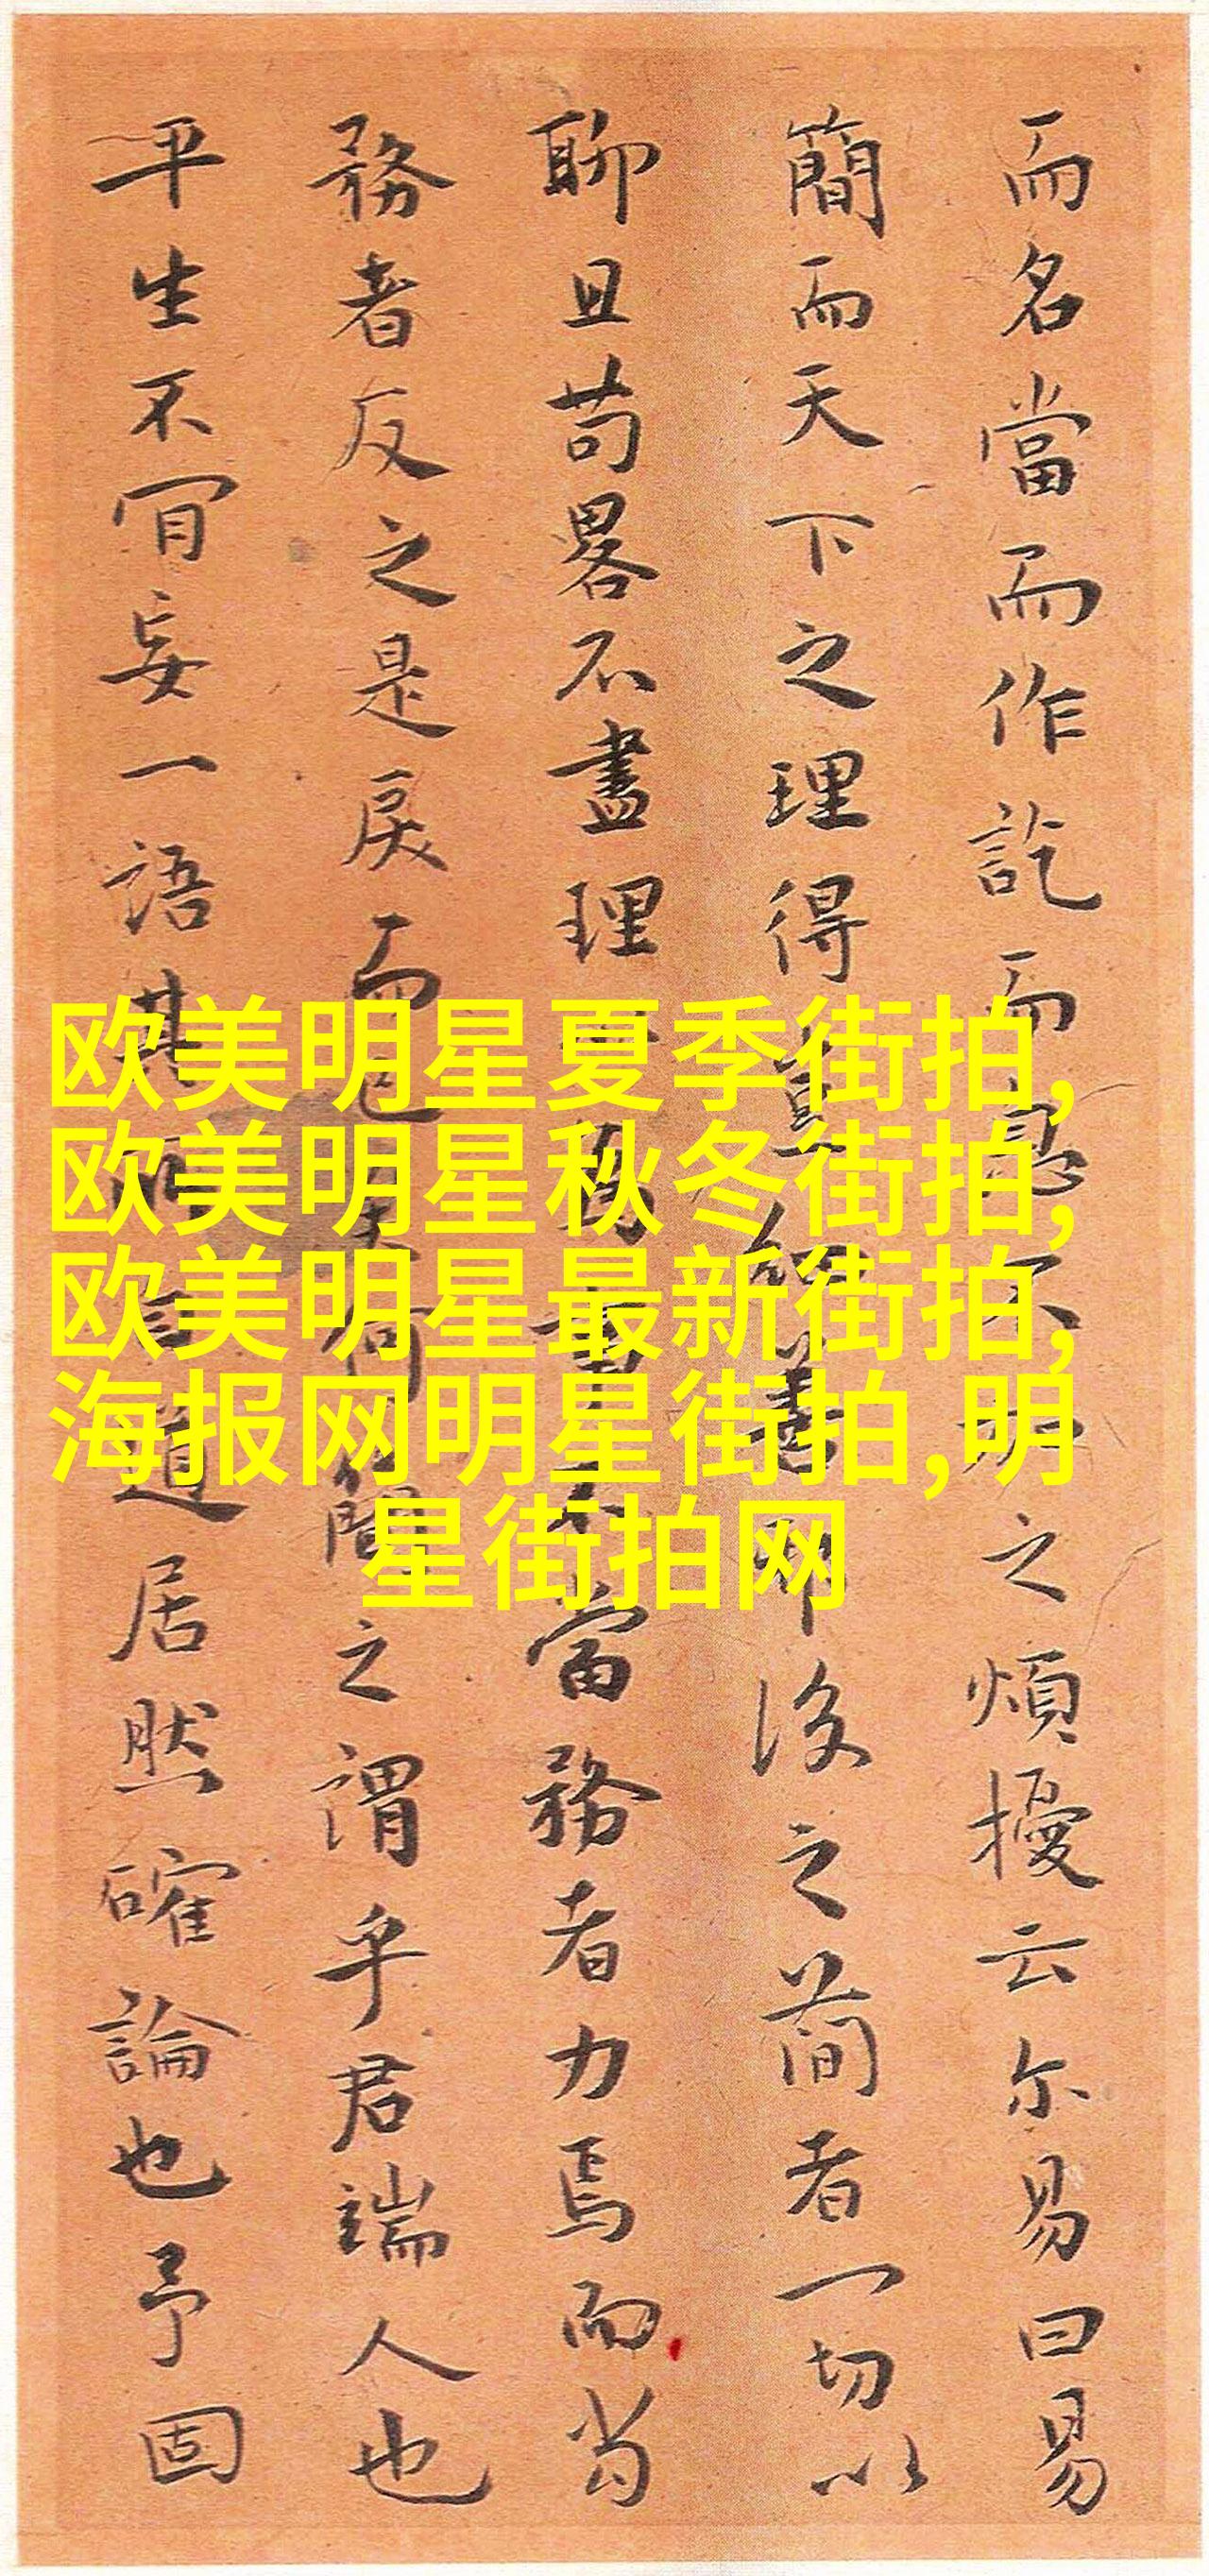 而名當而作訖而息不加之煩擾云尔易曰易
簡而天下之理得矣經善耶後之簡者一切以
聊且苟畧不盡理為事不當務者力焉而當
務者反之是戾而已矣何簡之謂乎君端人也
平生不肎妄一語其所言道居然確論也予固
欧美明星夏季街拍,
欧美明星秋冬街拍,
欧美明星最新街拍,
海报网明星街拍,明
星街拍网